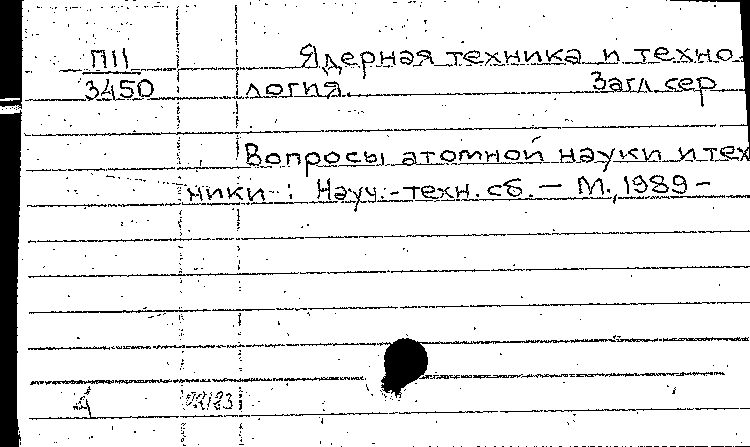 П11 Ядерная техника и техно-
3450 логия. Загл. сер
Вопросы атомной науки и тех
ники : Науч.-техн. сб. — М., 1989 -